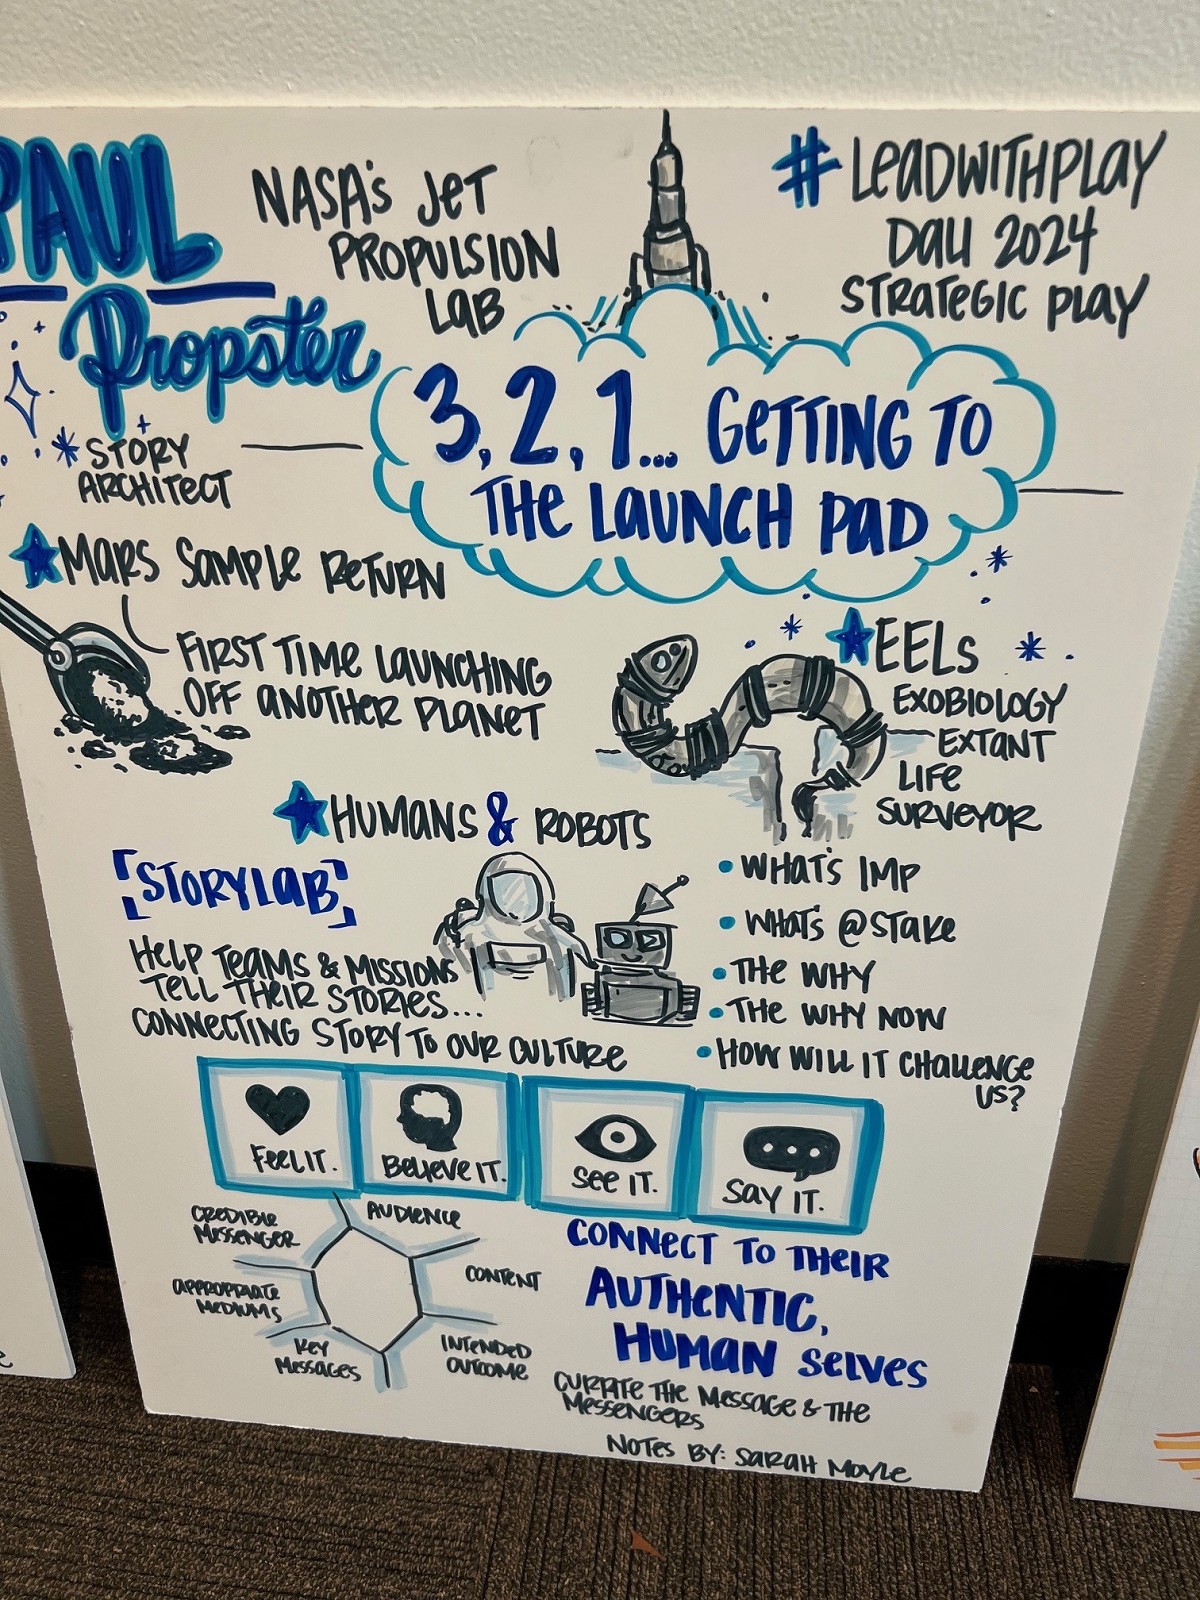 PAUL
Propster
NASA's JET
PROPULSION
LAB
# LEADWITHPLAY
DAU 2024
STRATEGIC PLAY
* STORY
ARCHITECT
3, 2, 1... GETTING TO
THE LAUNCH PAD
MARS SAMPLE RETURN
FIRST TIME LAUNCHING
OFF ANOTHER PLANET
EELS
EXOBIOLOGY
EXTANT
LIFE
SURVEYOR
HUMANS & ROBOTS
[STORYLAB]
HELP TEAMS & MISSIONS
TELL THEIR STORIES...
CONNECTING STORY TO OUR CULTURE
• WHAT'S IMP
• WHAT'S @STAKE
• THE WHY
• THE WHY NOW
• HOW WILL IT CHALLENGE
US?
FEEL IT.
BELIEVE IT.
SEE IT.
SAY IT.
CREDIBLE
MESSENGER
AUDIENCE
CONTENT
INTENDED
OUTCOME
KEY
MESSAGES
APPROPRIATE
MEDIUMS
CONNECT TO THEIR
AUTHENTIC,
HUMAN SELVES
CURATE THE MESSAGE & THE
MESSENGERS
NOTES BY: SARAH MOYLE